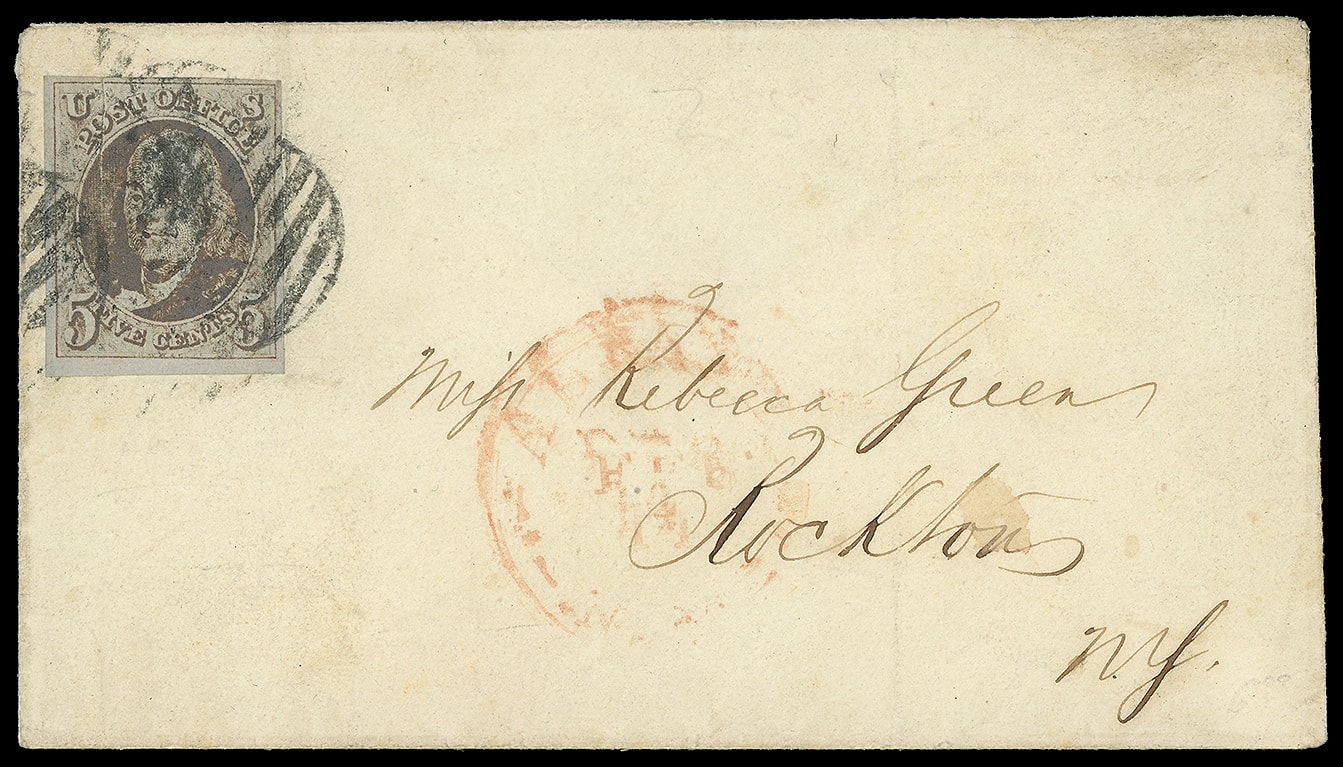 U S
POST OFFICE
5 FIVE CENTS 5
FEB
Miss Rebecca Green
Rockton
N.Y.